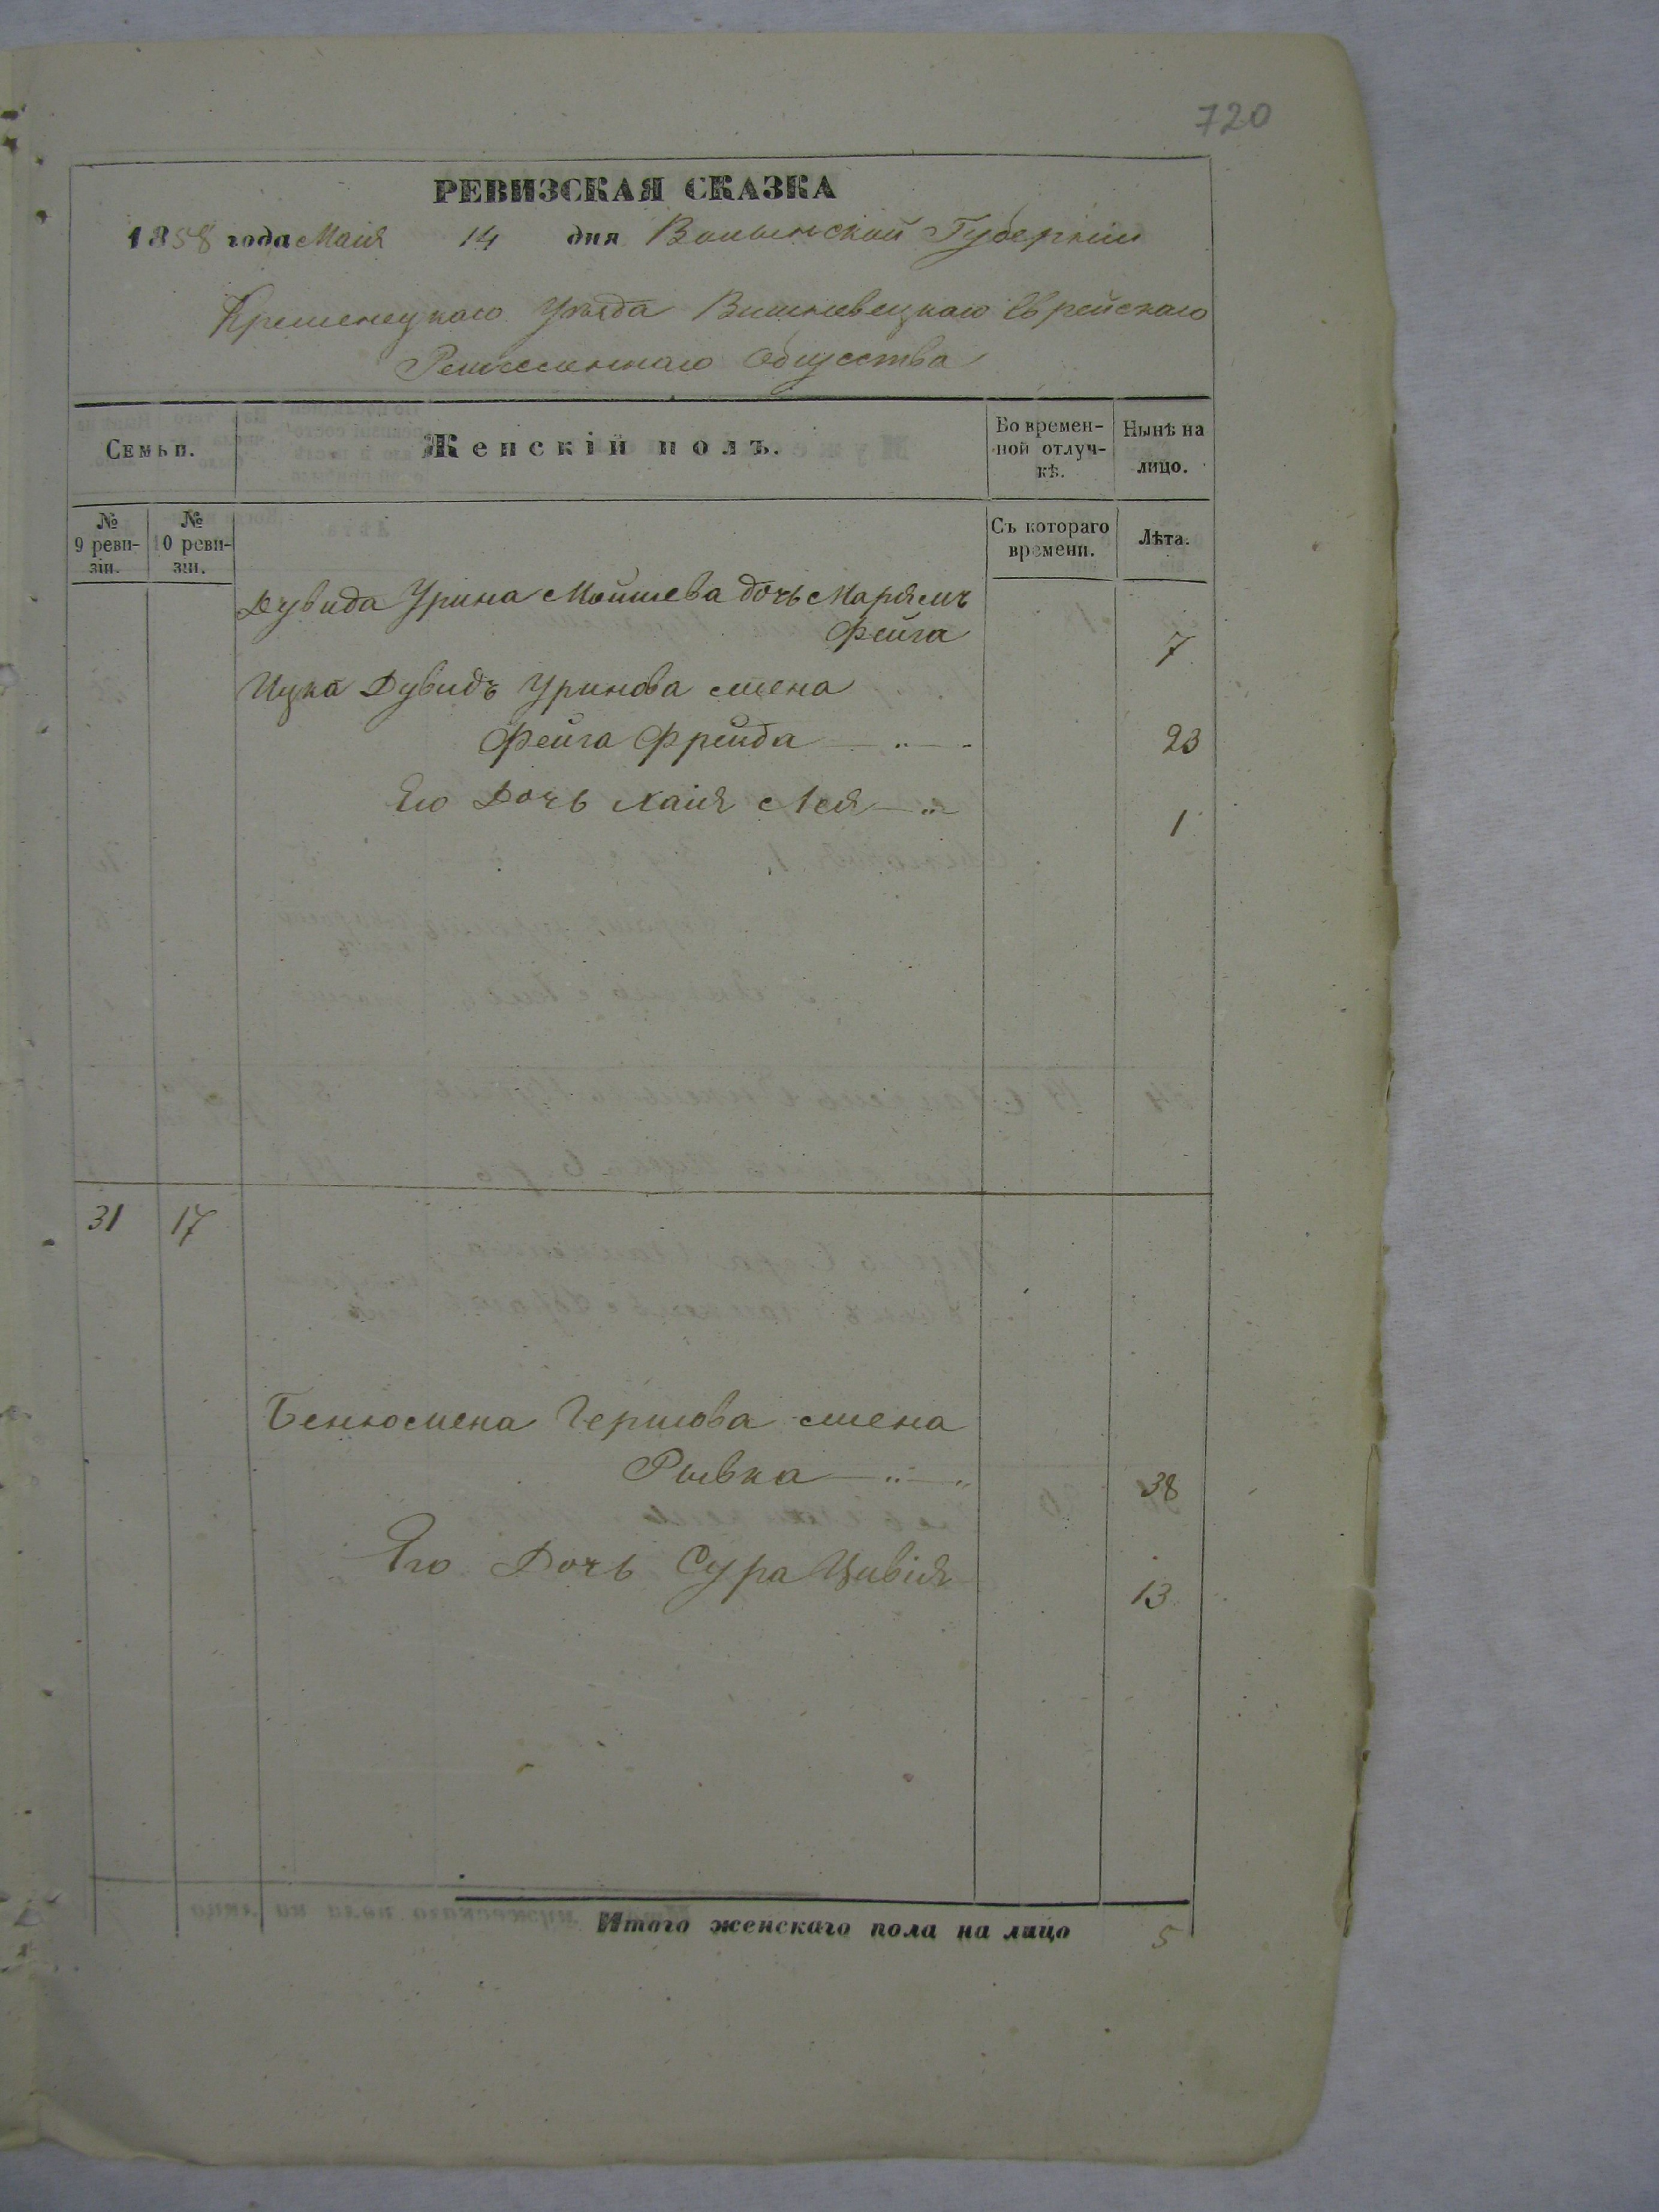 720
РЕВИЗСКАЯ СКАЗКА
1858 года Маія 14 дня Волынской Губерніи
Кременецкаго Уѣзда Вишневецкаго Еврейскаго
Ремесленнаго Общества
Семьи.
Женскій полъ.
Во времен-
ной отлуч-
кѣ.
Нынѣ на
лицо.
№
9 реви-
зіи.
№
10 реви-
зіи.
Съ котораго
времени.
Лѣта.
Дувида Урина Мойшева дочь Марьямъ
Фейга 7
Ицка Дувидъ Уринова жена
Фейга Фрейда 23
Его Дочь Хаія Лея 1
31 17
Бенюмена Гершова жена
Рывка 38
Его Дочь Сура Цивія 13
Итого женскаго пола на лицо 5